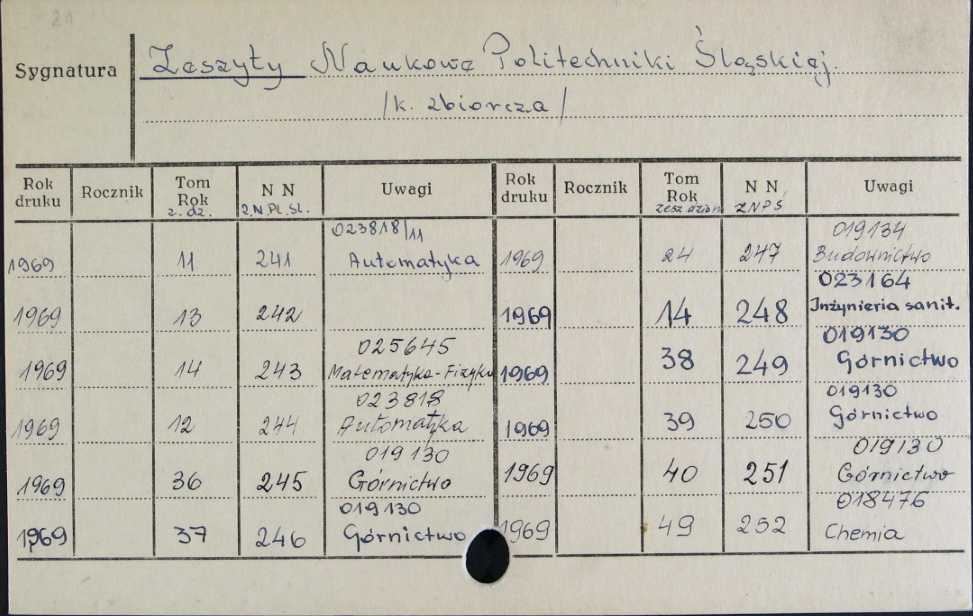 21
Sygnatura Zeszyty Naukowe Politechniki Śląskiej.
/k. zbiorcza/
Rok druku Rocznik Tom Rok z. dz. N N Z.N.Pl.Śl. Uwagi Rok druku Rocznik Tom Rok zesz dzion N N ZNPŚ Uwagi
1969 11 241 023818/11 Automatyka 1969 24 247 019134 Budownictwo
1969 13 242 1969 14 248 023164 Inżynieria sanit.
1969 14 243 025645 Matematyka-Fizyka 1969 38 249 019130 Górnictwo
1969 12 244 023818 Automatyka 1969 39 250 019130 Górnictwo
1969 36 245 019130 Górnictwo 1969 40 251 019130 Górnictwo
1969 37 246 019130 Górnictwo 1969 49 252 018476 Chemia